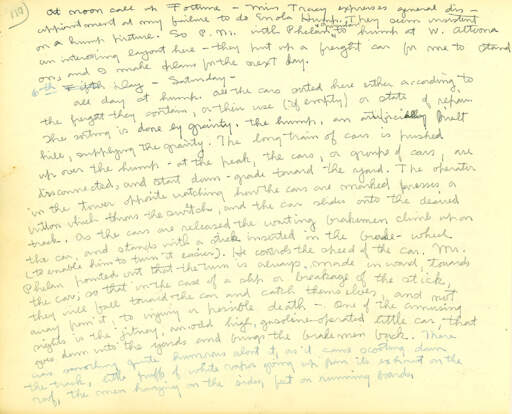 At noon call up Fortune - Miss Tracy expresses general dis-
appointment at my failure to do Enola Hump. They seem insistent
on a hump picture. So P.M. with Phelan to hump at W. Altoona
an interesting layout here - they put up a freight car for me to stand
on, and I make plans for the next day.
6th Fifth Day - Saturday -
All day at hump. All the cars sorted here either according to
the freight they contain, or their use (if empty) or state of repair.
The sorting is done by gravity. The hump, an artificially built
hill, supplying the gravity. The long train of cars is pushed
up over the hump - at the peak, the cars, or groups of cars, are
disconnected, and start down-grade toward the yard. The operator
in the tower opposite watching how the cars are marked presses a
button which throws the switch, and the car slides onto the desired
track. As the cars are released the waiting brakemen climb up on
the car, and stands with a stick inserted in the brake-wheel
(to enable him to turn it easier). He controls the speed of the car. Mr.
Phelan pointed out that the turn is always made inward, towards
the car, so that in the case of a slip or breakage of the stick,
they will fall toward the car and catch themselves, and not
away from it, to injury or possible death -. One of the amusing
sights is the jitney, an odd high, gasoline-operated little car, that
goes down into the yards and brings the brakemen back. There
was something quite humorous about it, as it came scooting down
the track, little puffs of white vapor going up from its exhaust on the
roof, the men hanging on the sides, feet on running boards,